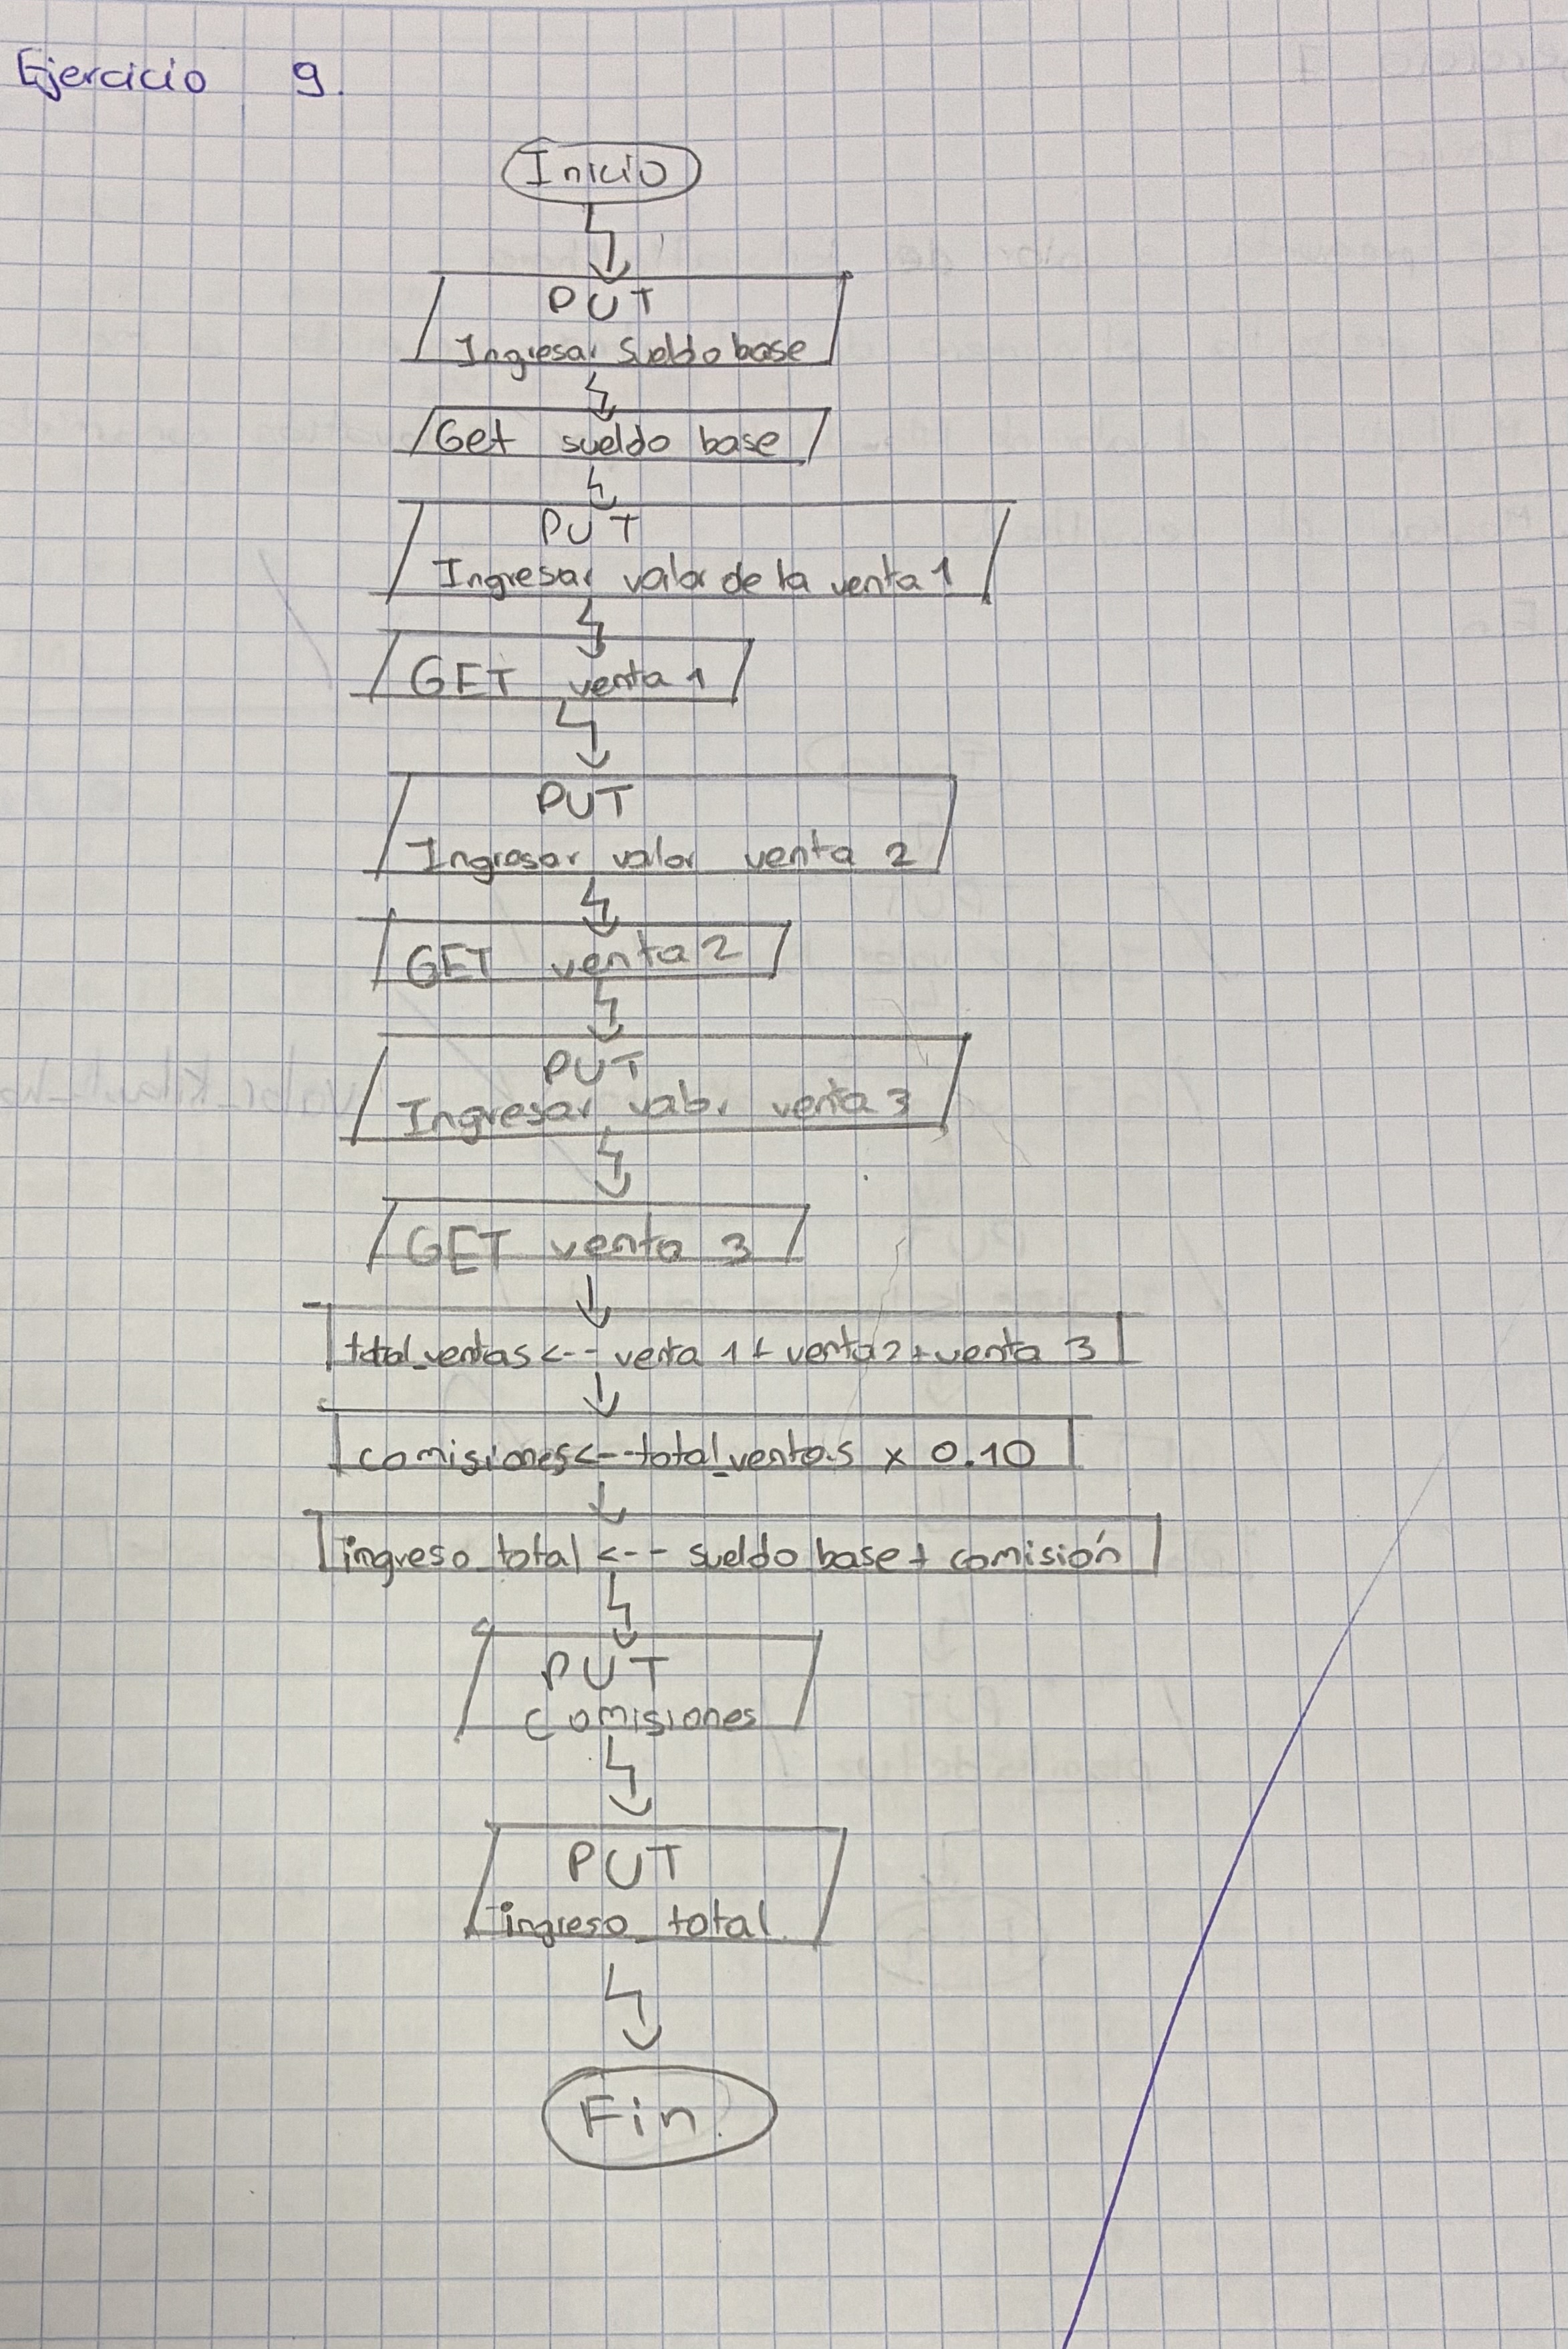 Ejercicio 9.
Inicio
PUT
Ingresar sueldo base
Get sueldo base
PUT
Ingresar valor de la venta 1
GET venta 1
PUT
Ingresar valor venta 2
GET venta 2
PUT
Ingresar valor venta 3
GET venta 3
total_ventas <-- venta 1 + venta 2 + venta 3
comisiones <-- total_ventas x 0.10
ingreso_total <-- sueldo base + comisión
PUT
comisiones
PUT
ingreso_total
Fin